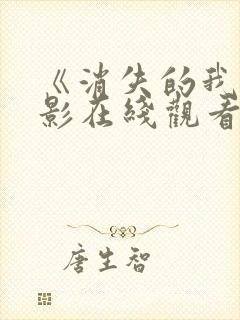 《消失的我
影在线观看
唐生智